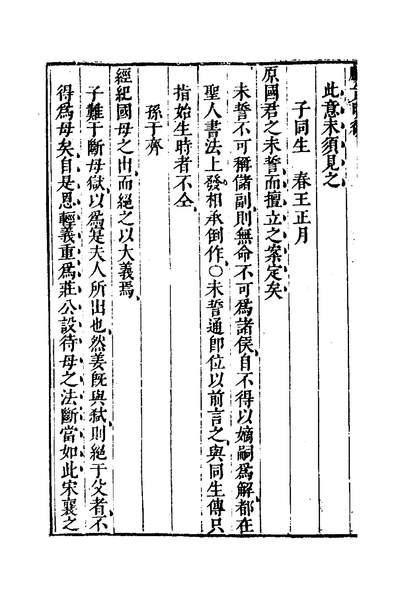 此意未須見之
子同生　春王正月
原國君之未誓而擅立之案定矣
未誓不可稱儲副則無命不可為諸侯自不得以嫡嗣為解都在
聖人書法上發相承倒作○未誓通卽位以前言之與同生傳只
指始生時者不仝
孫于齊
經紀國母之出而絕之以大義焉
子難于斷母獄以為是夫人所出也然姜旣與弒則絕于父者不
得為母矣自是恩輕義重為莊公設待母之法斷當如此宋襄之